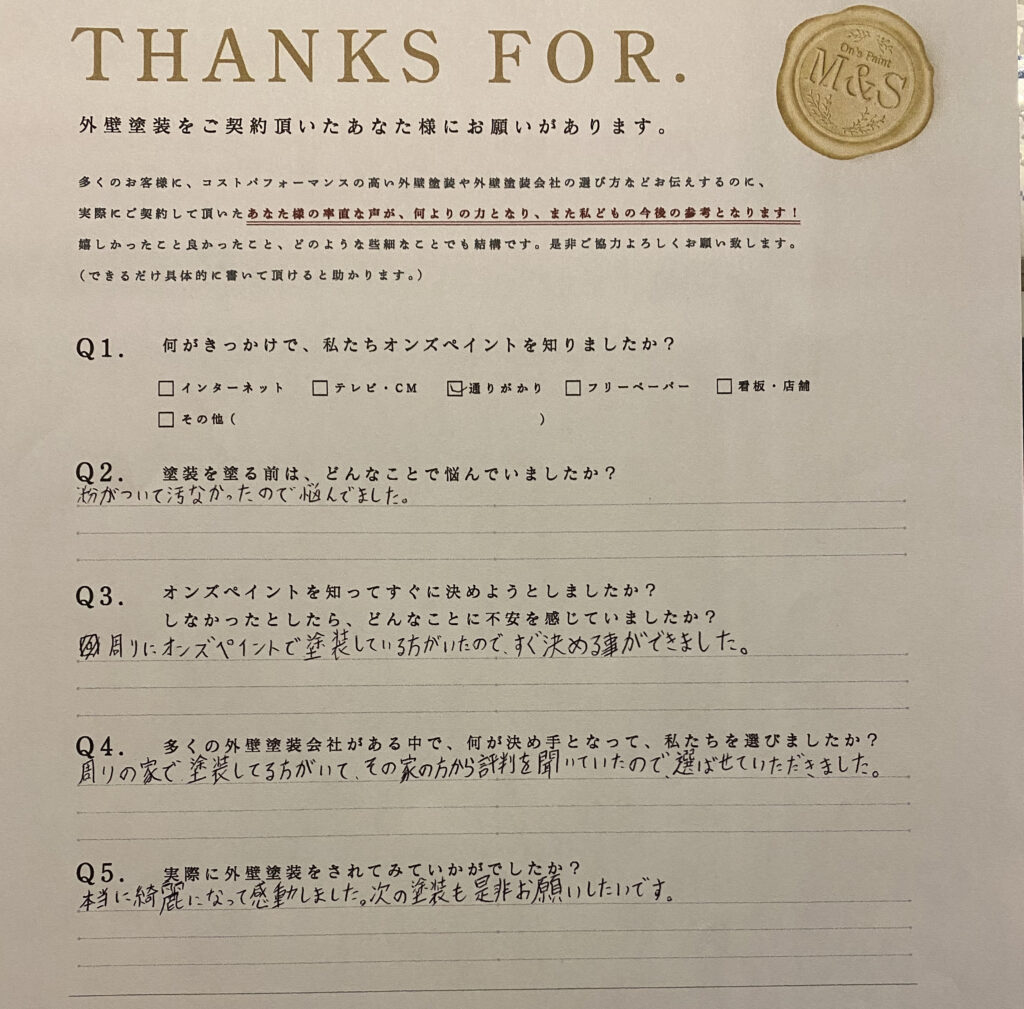 THANKS FOR.
On's Paint
M&S
外壁塗装をご契約頂いたあなた様にお願いがあります。
多くのお客様に、コストパフォーマンスの高い外壁塗装や外壁塗装会社の選び方などお伝えするのに、
実際にご契約して頂いたあなた様の率直な声が、何よりの力となり、また私どもの今後の参考となります！
嬉しかったこと良かったこと、どのような些細なことでも結構です。是非ご協力よろしくお願い致します。
（できるだけ具体的に書いて頂けると助かります。）
Q1. 何がきっかけで、私たちオンズペイントを知りましたか？
□インターネット □テレビ・CM ☑通りがかり □フリーペーパー □看板・店舗
□その他（ ）
Q2. 塗装を塗る前は、どんなことで悩んでいましたか？
粉がついて汚なかったので悩んでました。
Q3. オンズペイントを知ってすぐに決めようとしましたか？
しなかったとしたら、どんなことに不安を感じていましたか？
周りにオンズペイントで塗装している方がいたので、すぐ決める事ができました。
Q4. 多くの外壁塗装会社がある中で、何が決め手となって、私たちを選びましたか？
周りの家で塗装してる方がいて、その家の方から評判を聞いていたので、選ばせていただきました。
Q5. 実際に外壁塗装をされてみていかがでしたか？
本当に綺麗になって感動しました。次の塗装も是非お願いしたいです。